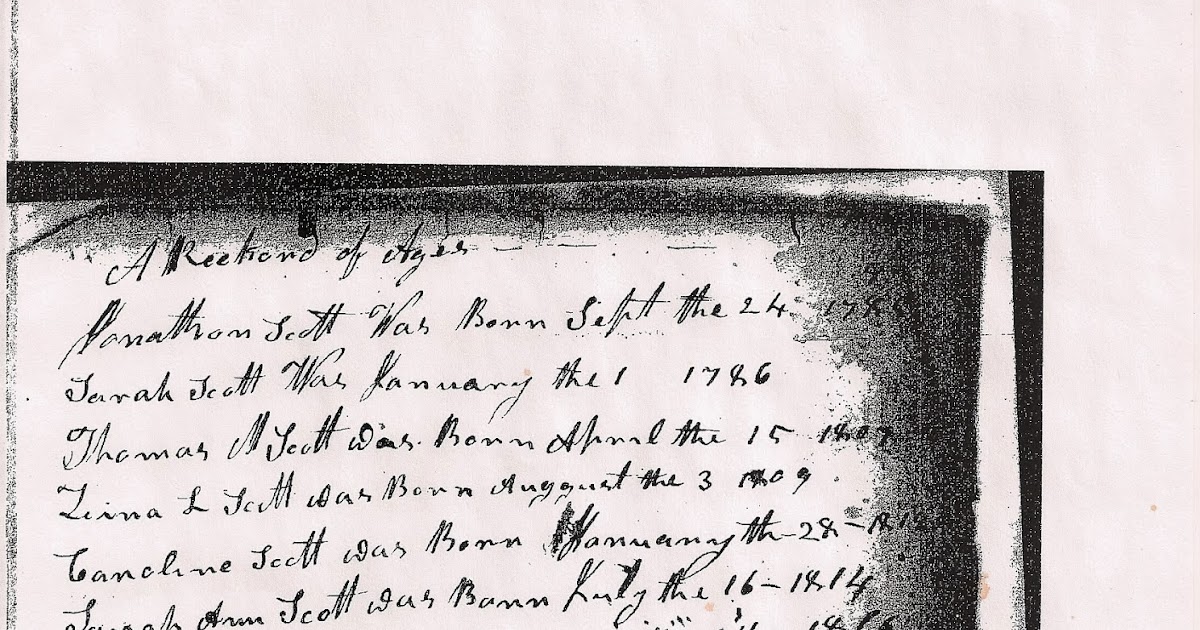 A Reckord of Ages
Jonathan Scott Was Born Sept the 24
Sarah Scott Was January the 1 1786
Thomas M Scott was Born April the 15
Scott was Born Auggust the 3
Caroline Scott was Born January the 28
Sarah Ann Scott was Born July the 16 - 1814